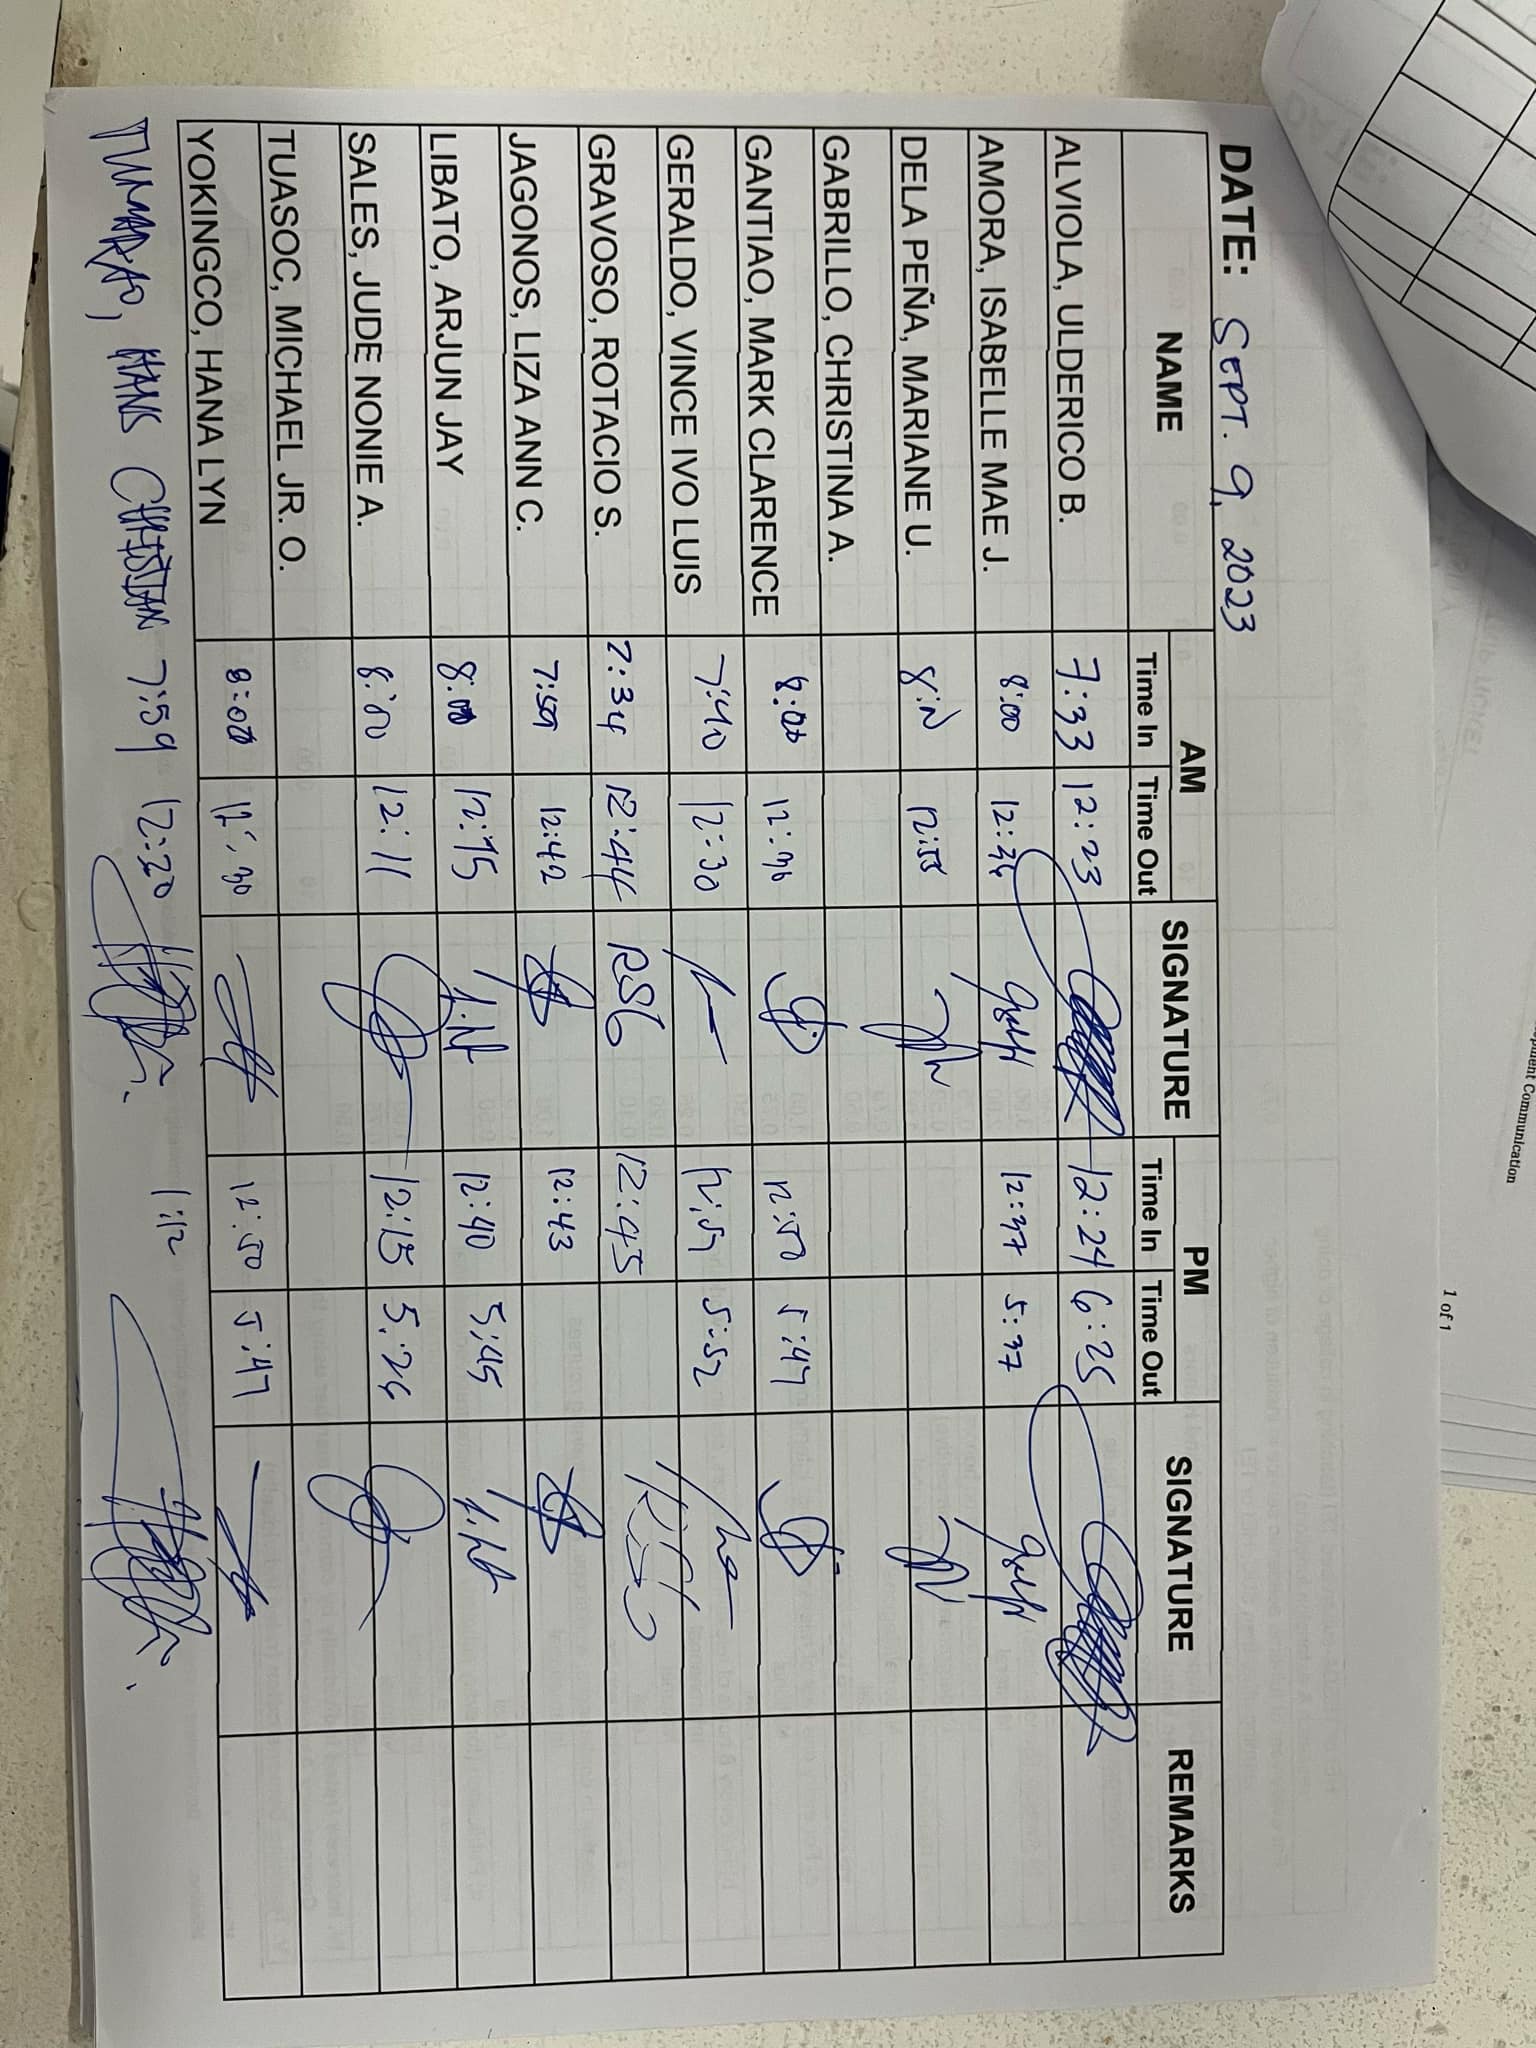 DATE: SEPT. 9, 2023
NAME AM SIGNATURE PM SIGNATURE REMARKS
Time In Time Out Time In Time Out
ALVIOLA, ULDERICO B. 7:33 12:23 12:24 6:25
AMORA, ISABELLE MAE J. 8:00 12:36 12:37 5:37
DELA PEÑA, MARIANE U. 12:55
GABRILLO, CHRISTINA A.
GANTIAO, MARK CLARENCE 8:00 12:30 12:50 5:47
GERALDO, VINCE IVO LUIS 7:40 12:30 12:57 5:52
GRAVOSO, ROTACIO S. 7:34 12:44 RSG 12:45
JAGONOS, LIZA ANN C. 7:59 12:42 12:43
LIBATO, ARJUN JAY 8:00 12:15 12:40 5:45
SALES, JUDE NONIE A. 8:00 12:11 12:15 5:26
TUASOC, MICHAEL JR. O.
YOKINGCO, HANA LYN 8:00 12:30 12:50 5:47
TUMARAO, HANS CHRISTIAN 7:59 12:20 1:12
1 of 1
Communication